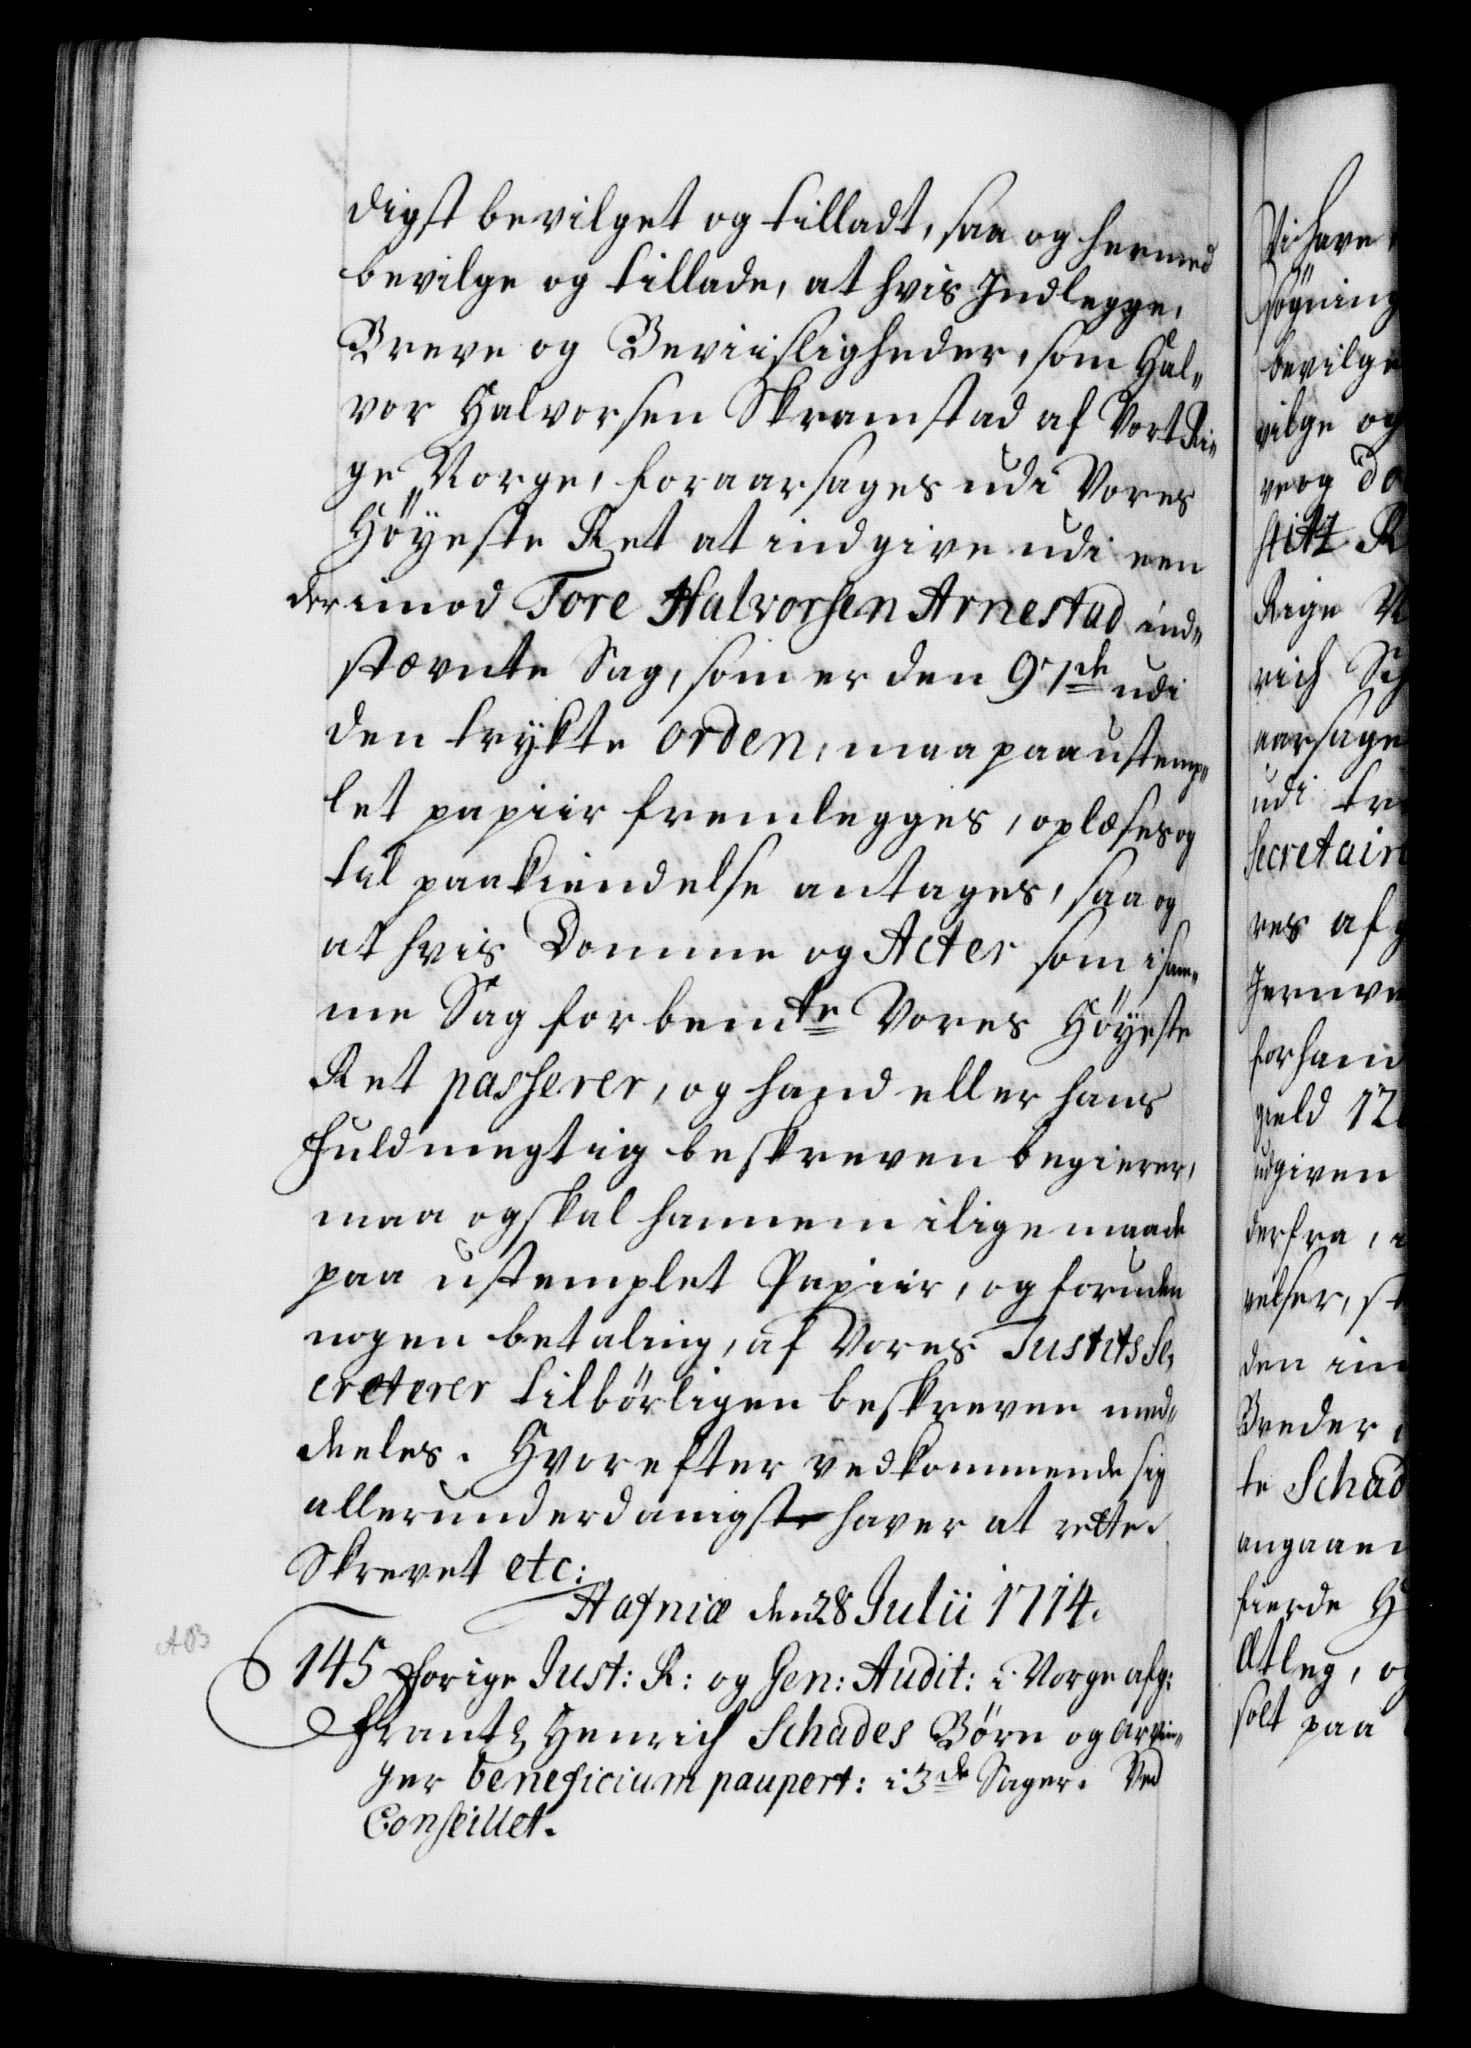 digst bevilget og tilladt, saa og hermed
bevilge og tillade, at hvis Indlegge,
Breve og Beviisligheder, som Hal„
vor Halvorsen Skramstad af Vort Ri„
ge Norge, foraarsages udi Vores
Høyeste Ret at indgive udi een
derimod Tore Halvorsen Arnestad ind„
stævnte Sag, som er den 97de udi
den trykte orden, maa paa ustemp„
let papiir fremlegges, oplæses og
til paakiendelse antages, saa og
at hvis Domme og Acter som i sam„
me Sag for bemte Vores Høyeste
Ret passerer, og hand eller hans
Fuldmegtig beskreven begierer,
maa og skal hannem i lige maade
paa ustemplet Papiir, og foruden
nogen betaling, af Vores Justits Se„
creterer tilbørligen beskreven med„
deeles. Hvorefter vedkommende sig
allerunderdanigst haver at rette.
Skrevet etc:
Hafniæ den 28 Julii 1714.
145 Forige Just: R: og Gen: Audit: i Norge afg:
Frantz Henrich Schades Børn og Arvin„
ger beneficium paupert: i 3de Sager. Ved
Conseillet.
Vi have
søgning
bevilge
vilge og
veog do
stitz R
Rige N
rich Sch
aarsage
udi tre
Secretair
res af g
Jernve
forhan
gield 12
udgiven
derfra, i
velser, st
den in
Breder
te Schad
angaaen
fierde H
Atleg, og
solt paa